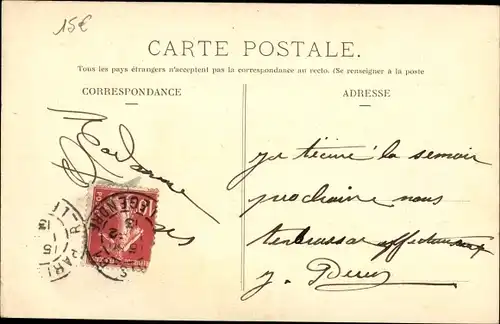 15€
CARTE POSTALE.
Tous les pays étrangers n'acceptent pas la correspondance au recto. (Se renseigner à la poste
CORRESPONDANCE
ADRESSE
Madame
je t'écrire la semain
prochaine nous
tembrassar affectueus
J.